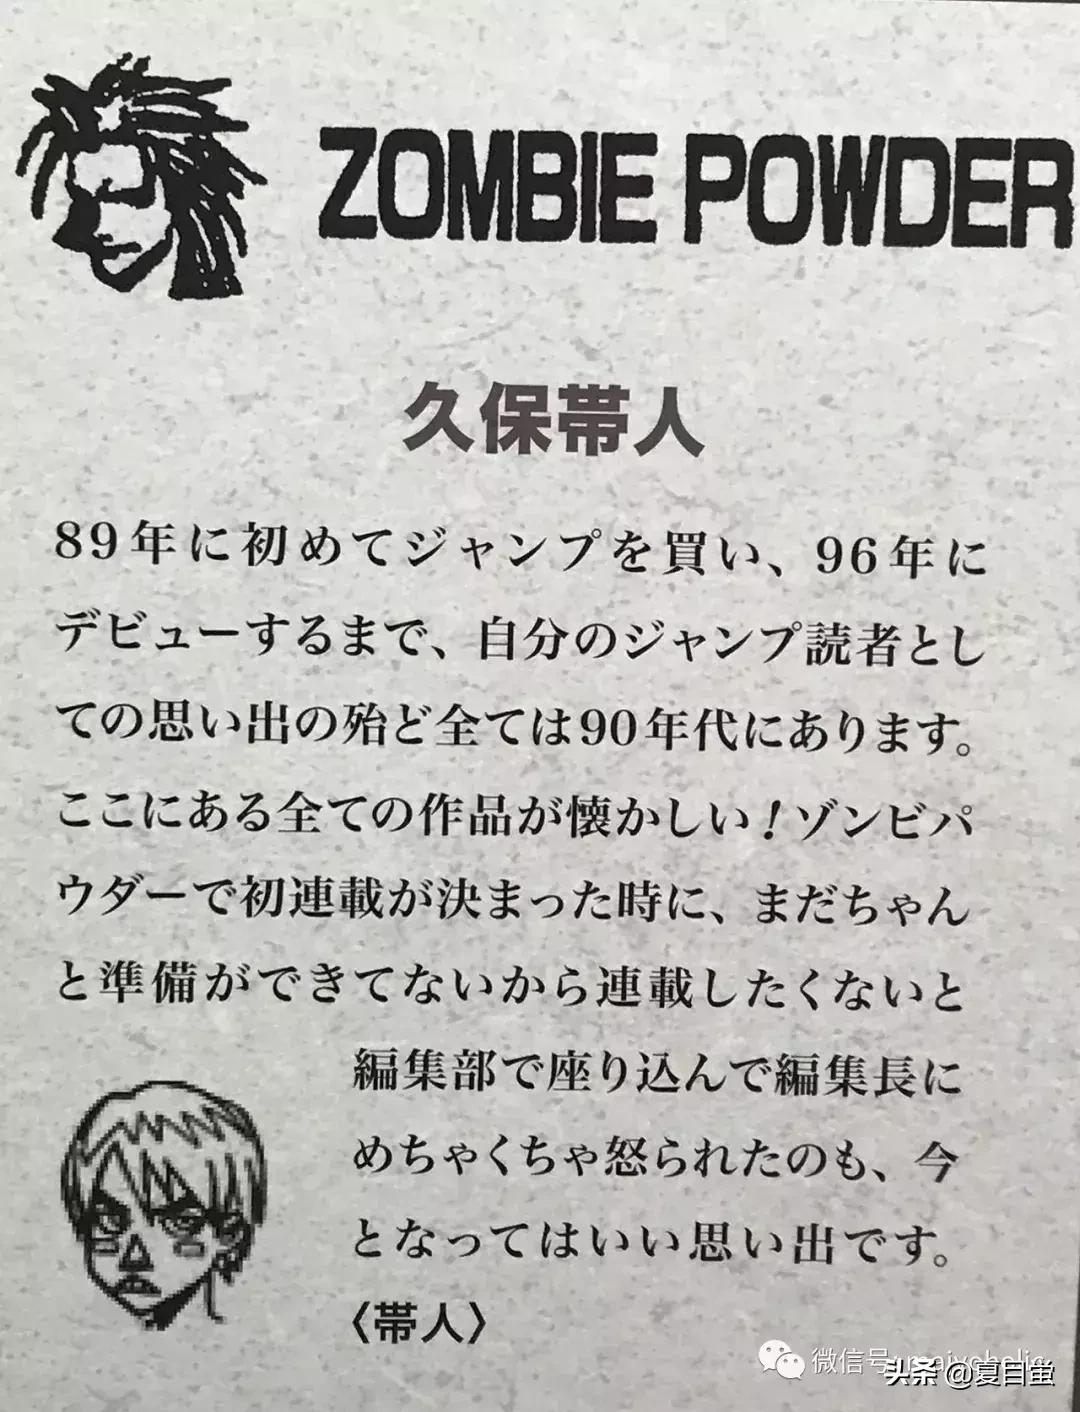 ZOMBIE POWDER
久保帯人
89年に初めてジャンプを買い、96年に
デビューするまで、自分のジャンプ読者とし
ての思い出の殆ど全ては90年代にあります。
ここにある全ての作品が懐かしい!ゾンビパ
ウダーで初連載が決まった時に、まだちゃん
と準備ができてないから連載したくないと
編集部で座り込んで編集長に
めちゃくちゃ怒られたのも、今
となってはいい思い出です。
〈帯人〉
微信号:
头条 @夏目蛍